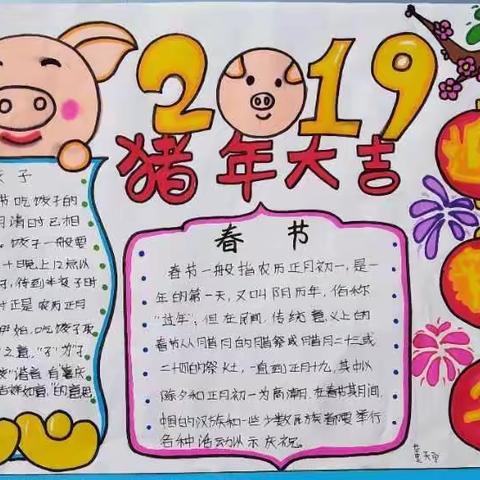 2019
猪年大吉
子
节吃饺子的
明清时已相
饺子一般要
十晚上12点以
待到半夜子时
正是农历正月
伊始,吃饺子取
之意,"子"为"子
谐音,有喜庆
吉祥如意"的意思
春节
春节一般指农历正月初一,是一
年的第一天,又叫阴历年,俗称
"过年",但在民间,传统意义上的
春节从腊月的腊祭或腊月二十三或
二十四的祭灶,一直到正月十九,其中以
除夕和正月初一为高潮,在春节其月间,
中国的汉族和一些少数民族都要举行
各种活动以示庆祝。